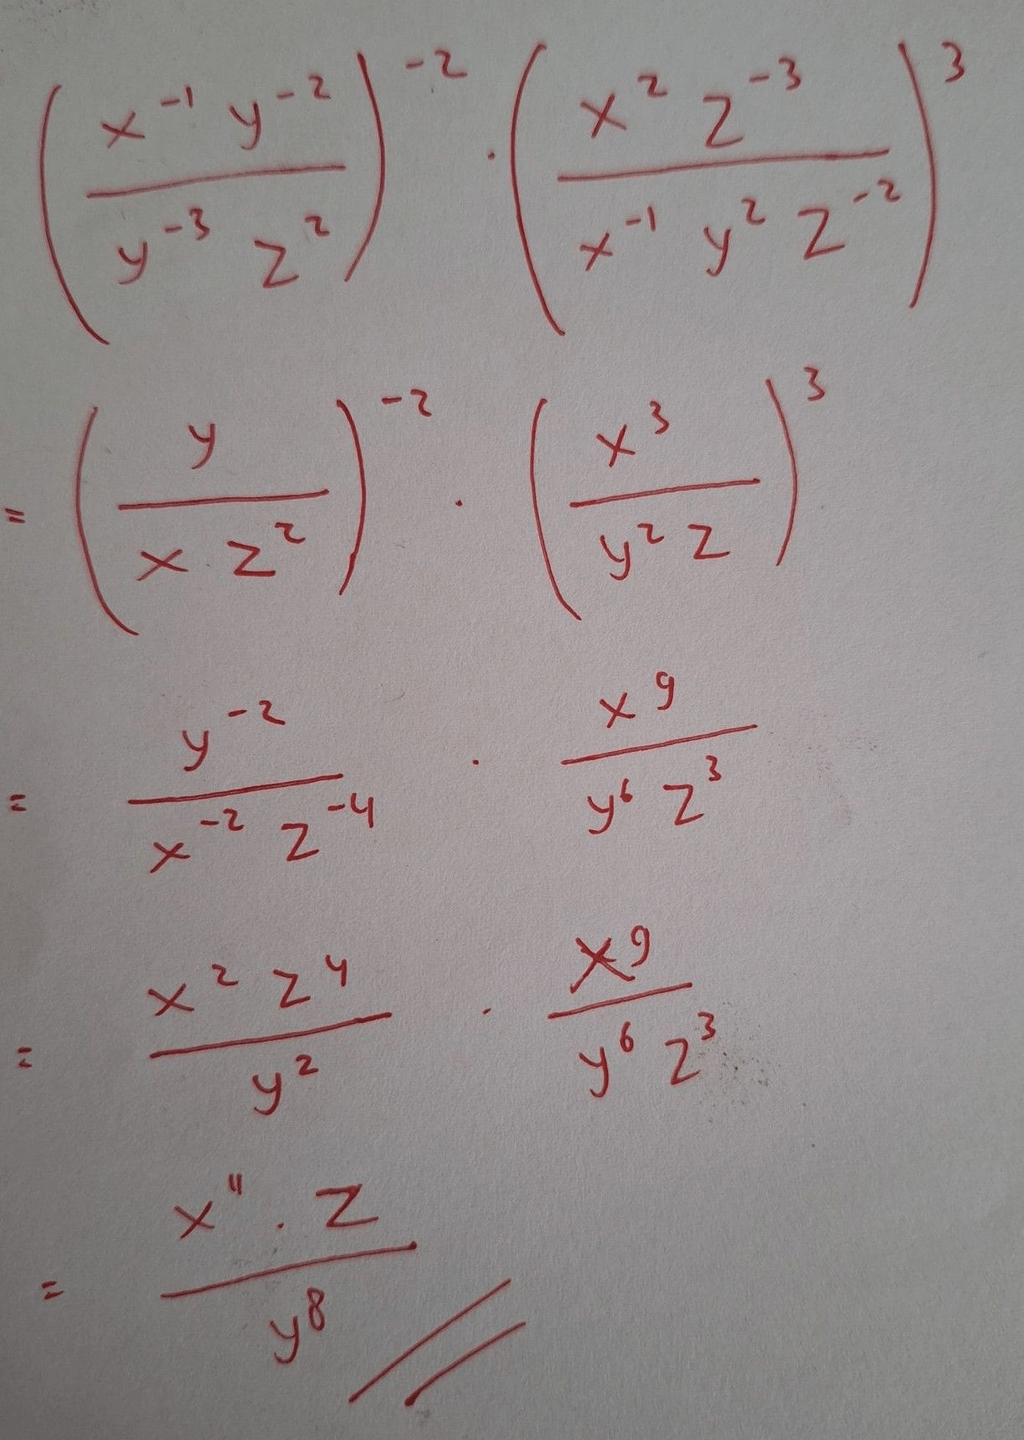 (x⁻¹ y⁻² / y⁻³ z²)⁻² · (x² z⁻³ / x⁻¹ y² z⁻²)³
= (y / x z²)⁻² · (x³ / y² z)³
= y⁻² / x⁻² z⁻⁴ · x⁹ / y⁶ z³
= x² z⁴ / y² · x⁹ / y⁶ z³
= x¹¹ . z / y⁸ //